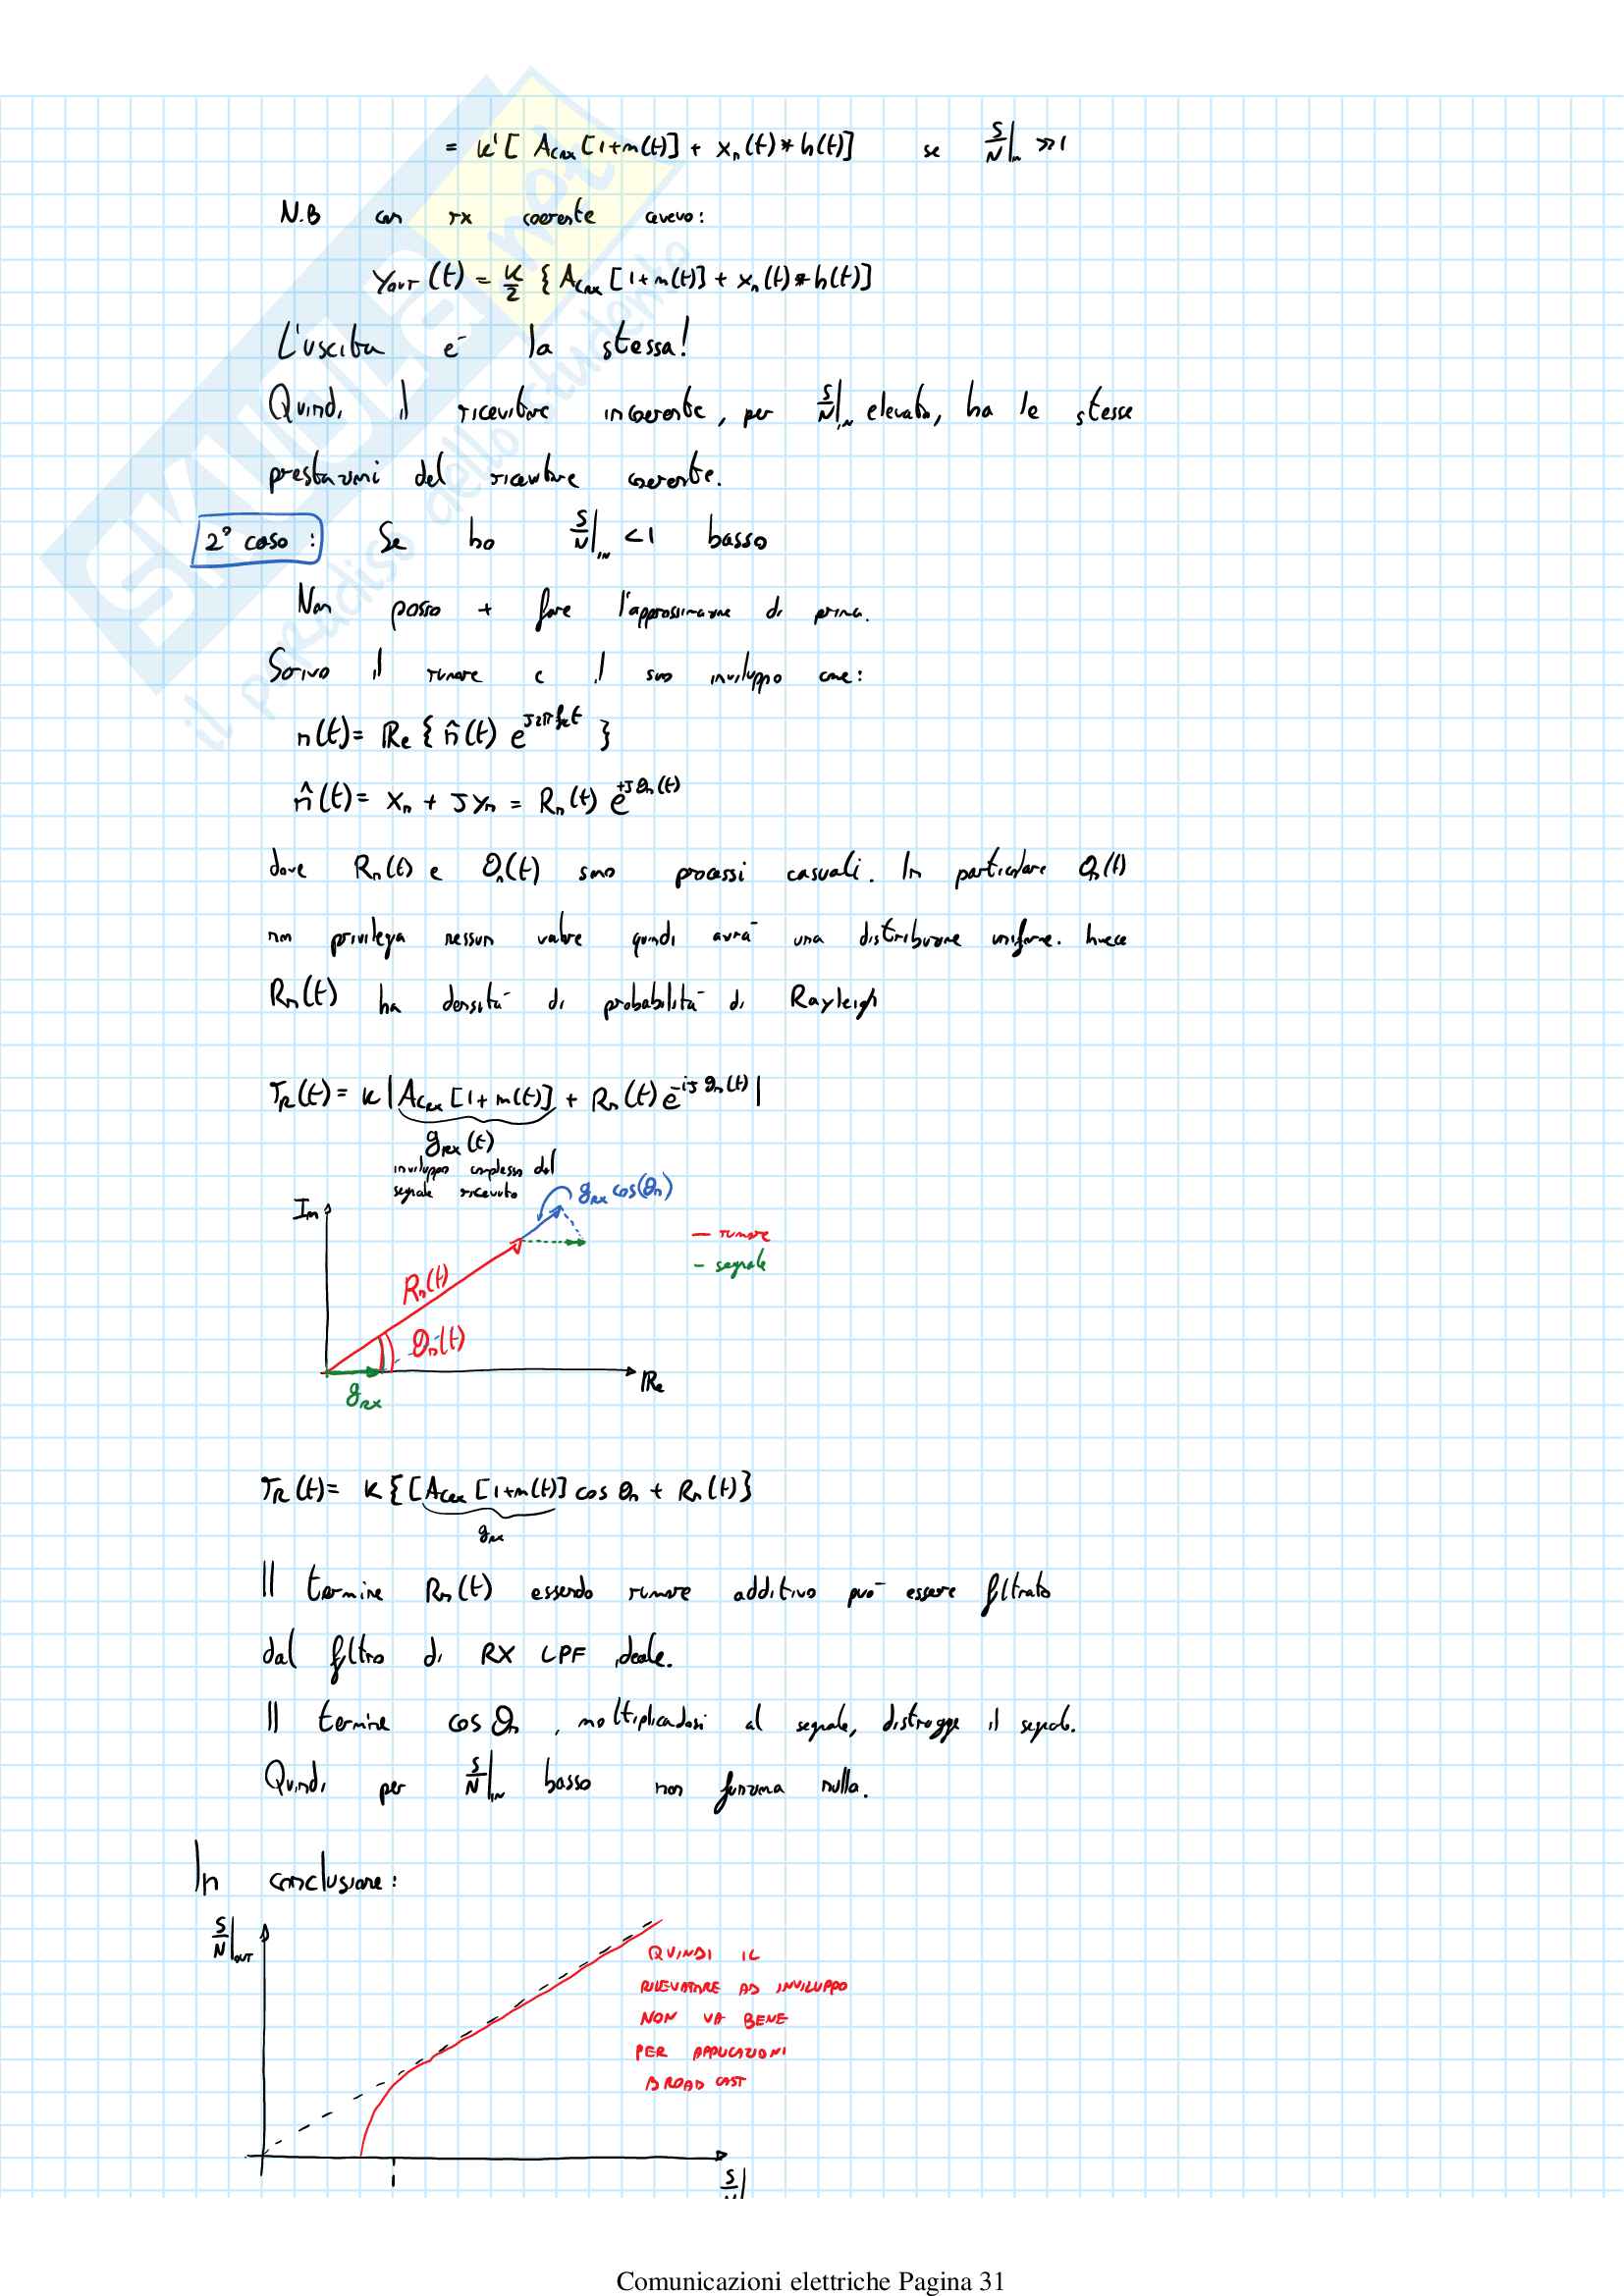 = K'[ A_CRX [1+m(t)] + x_n(t)*h(t)] se S/N|_IN >>1
N.B con rx coerente avevo:
Y_OUT(t) = K/2 { A_CRX [1+m(t)] + x_n(t)*h(t)]
L'uscita è la stessa!
Quindi il ricevitore incoerente, per S/N|_IN elevato, ha le stesse
prestazioni del ricevitore coerente.
2° caso: Se ho S/N|_IN <1 basso
Non posso + fare l'approssimazione di prima.
Scrivo il rumore e il suo inviluppo come:
n(t)= Re { n̂(t) e^{j2πfct} }
n̂(t)= x_n + j y_n = R_n(t) e^{+jθ_n(t)}
dove R_n(t) e θ_n(t) sono processi casuali. In particolare θ_n(t)
non privilegia nessun valore quindi avrà una distribuzione uniforme. Invece
R_n(t) ha densità di probabilità di Rayleigh
r_R(t)= K | A_CRX [1+m(t)] + R_n(t) e^{-jθ_n(t)} |
g_RX(t)
inviluppo complesso del
segnale ricevuto
g_RX cos(θ_n)
Im
— rumore
– segnale
R_n(t)
θ_n(t)
Re
g_RX
r_R(t)= K {[A_CRX [1+m(t)] cos θ_n + R_n(t)}
g_RX
Il termine R_n(t) essendo rumore additivo può essere filtrato
dal filtro di RX LPF ideale.
Il termine cos θ_n, moltiplicandosi al segnale, distrugge il segnale.
Quindi per S/N|_IN basso non funziona nulla.
In conclusione:
S/N|_OUT
QUINDI IL
RILEVATORE AD INVILUPPO
NON VA BENE
PER APPLICAZIONI
BROADCAST
1
S/N|
SKUOLA.net
il paradiso dello studente
Comunicazioni elettriche Pagina 31